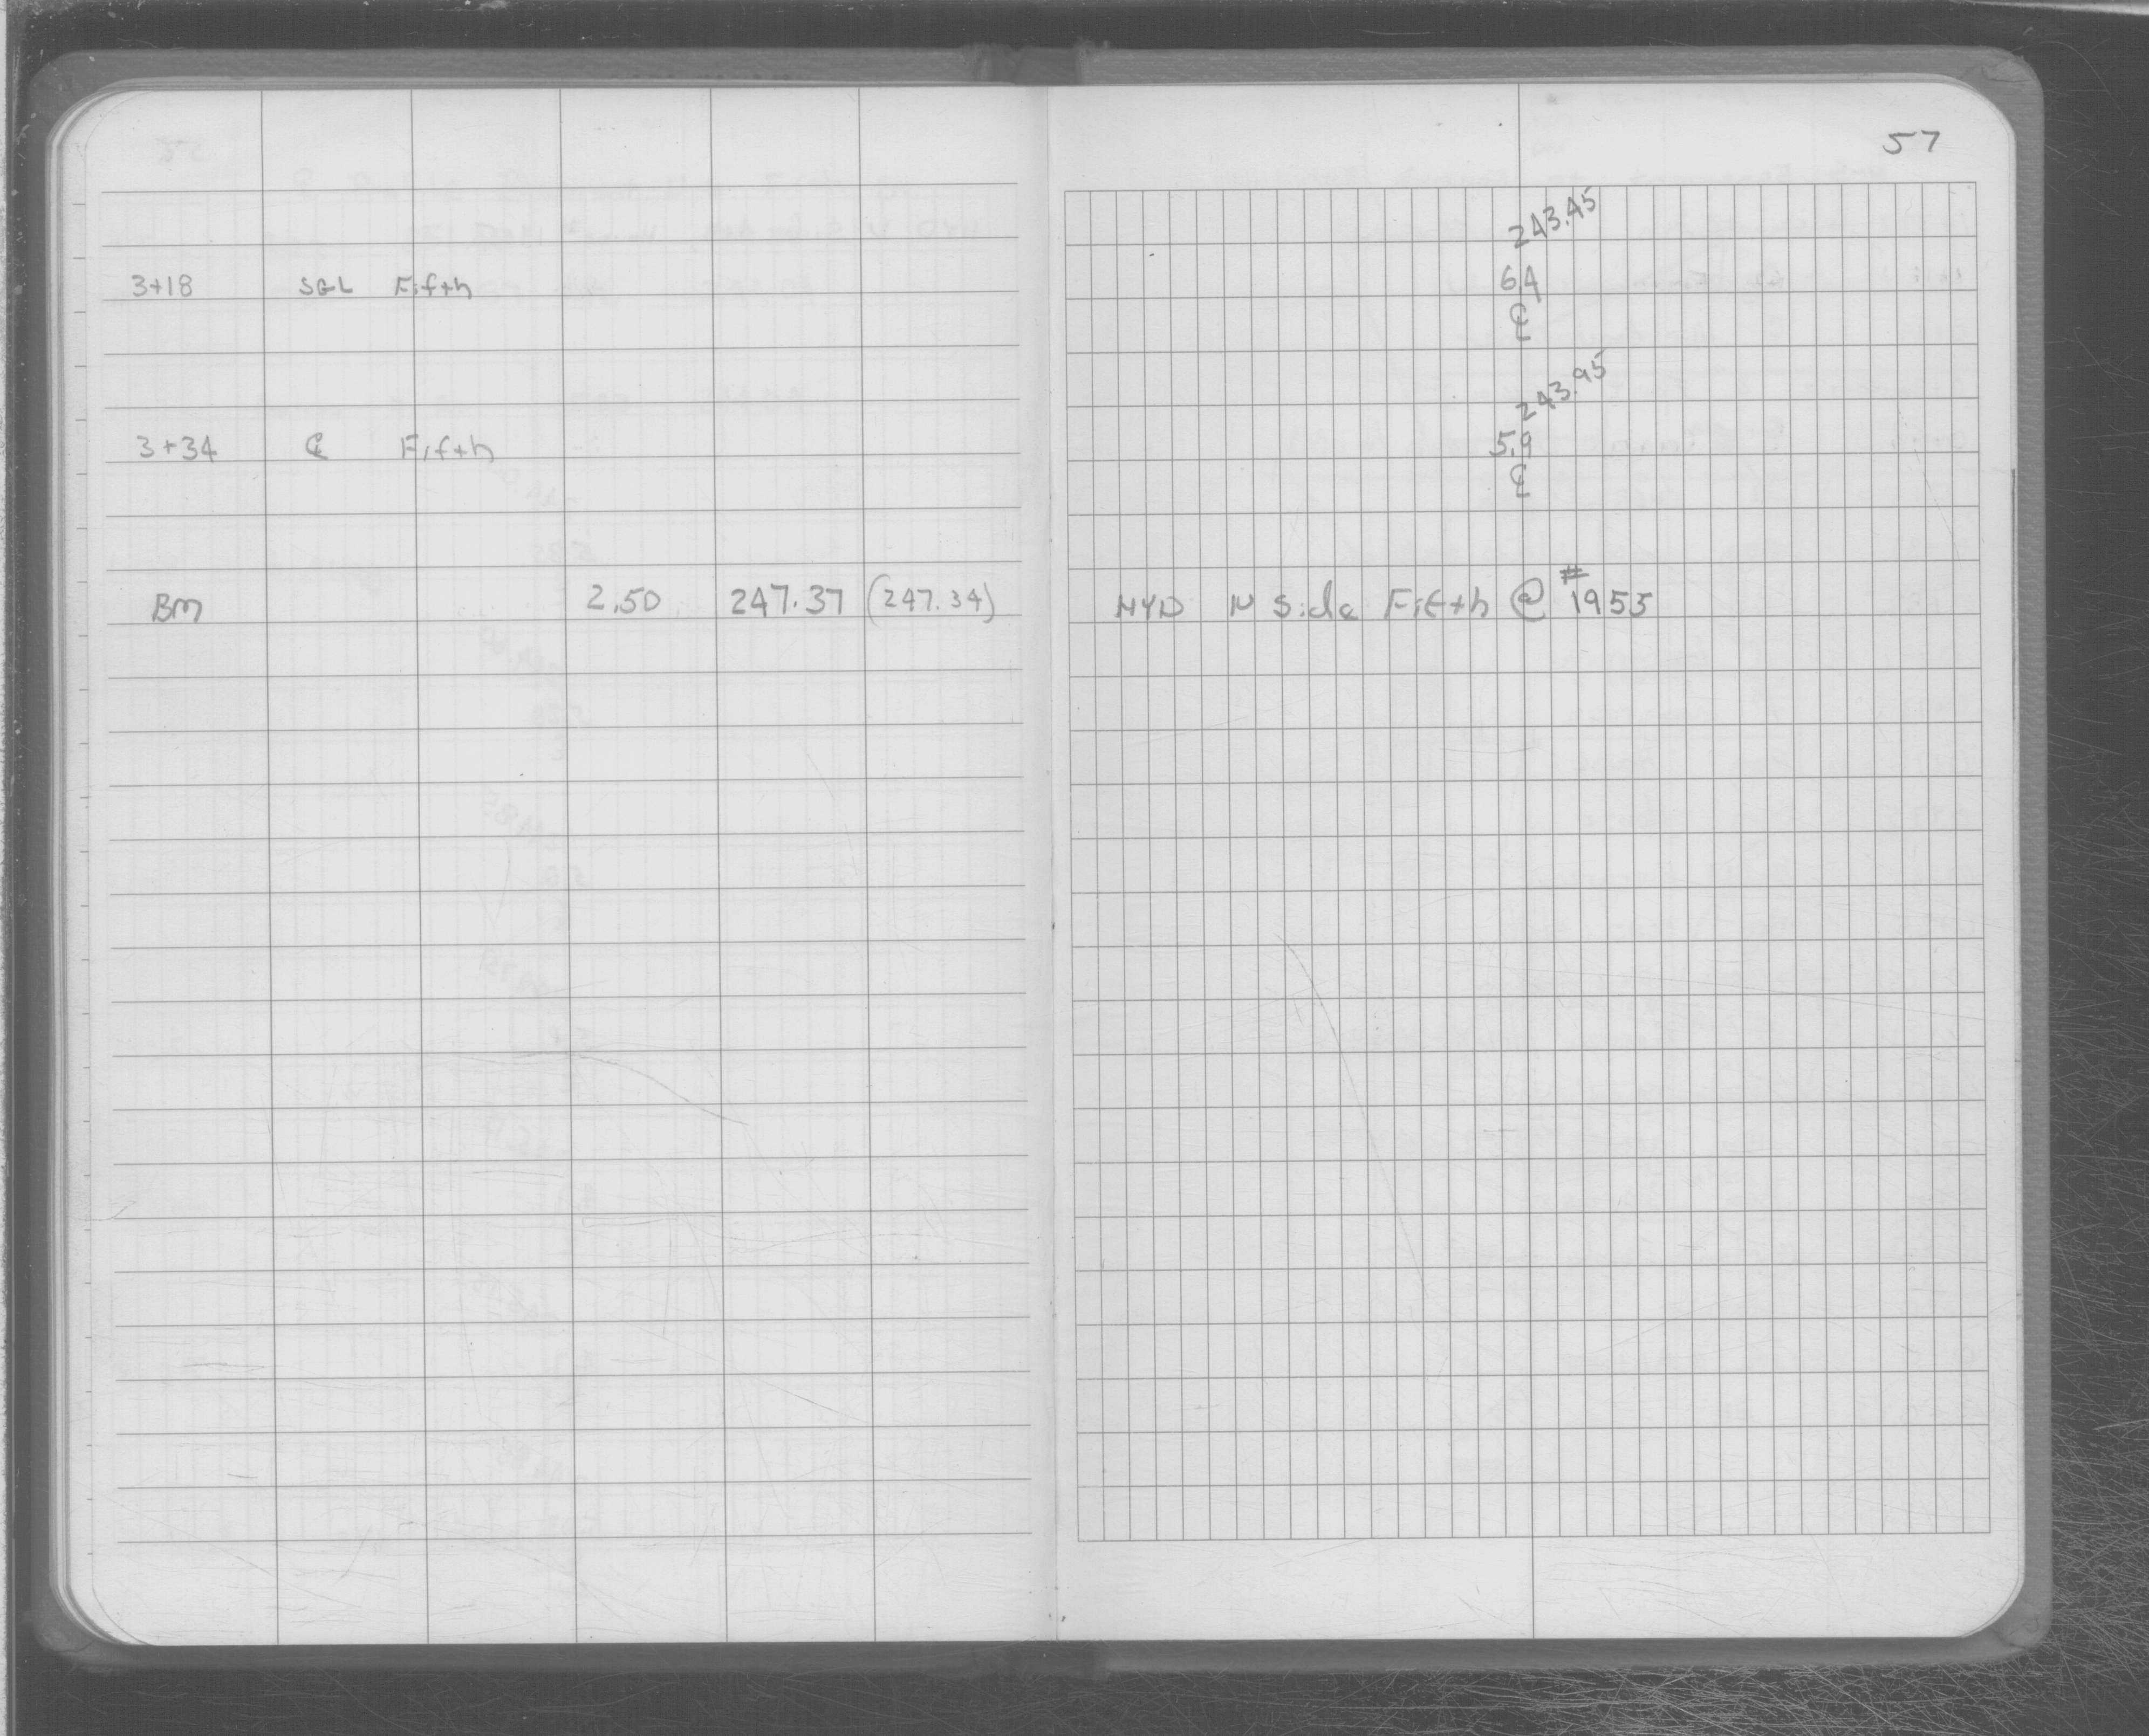 57
243.45
3+18 SGL Fifth 6.4
℄
243.95
3+34 ℄ Fifth 5.9
℄
BM 2.50 247.37 (247.34) HYD N Side Fifth @ #1955